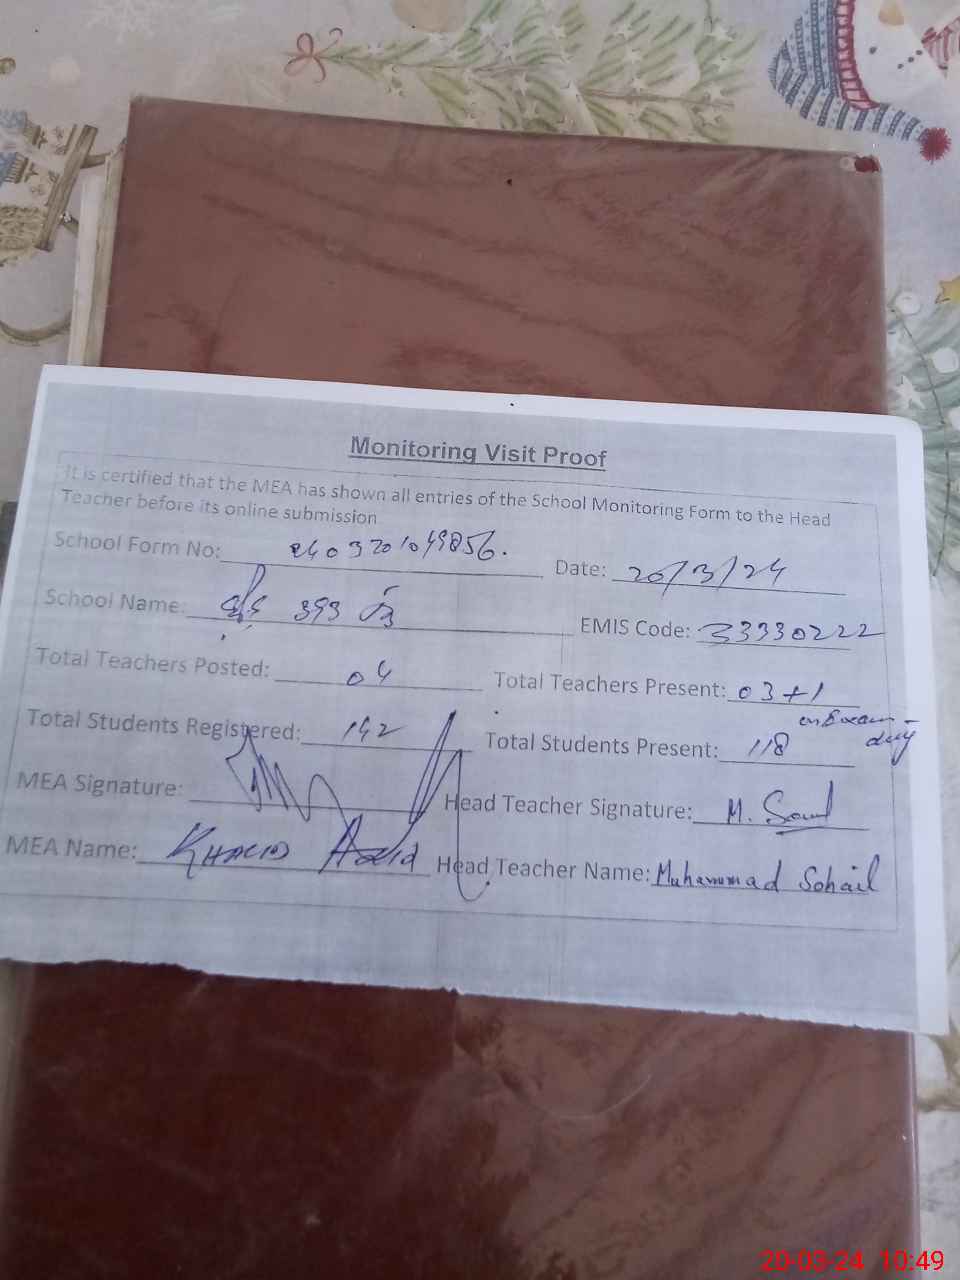 Monitoring Visit Proof
It is certified that the MEA has shown all entries of the School Monitoring Form to the Head
Teacher before its online submission
School Form No: 2403201049856.
Date: 20/3/24
School Name: 393
EMIS Code: 33330222
Total Teachers Posted: 04
Total Teachers Present: 03+1
on Exam duty
Total Students Registered: 142
Total Students Present: 118
MEA Signature:
Head Teacher Signature: M. Sohail
MEA Name: KHALID
Head Teacher Name: Muhammad Sohail
20-03-24 10:49